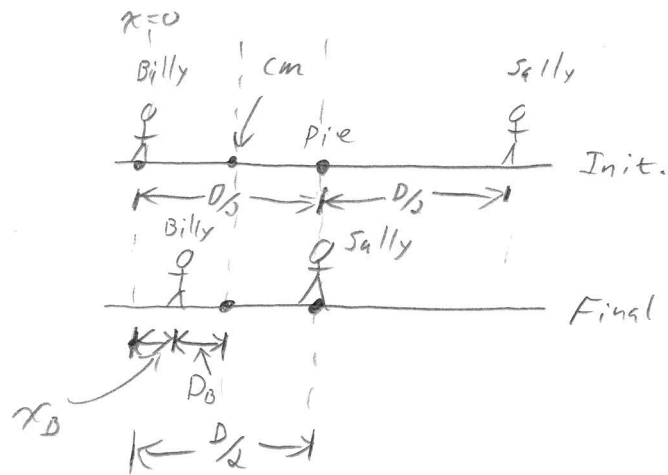 x=0
Billy
cm
Sally
Pie
Init.
D/2
D/2
Billy
Sally
Final
x_B
D_B
D/2